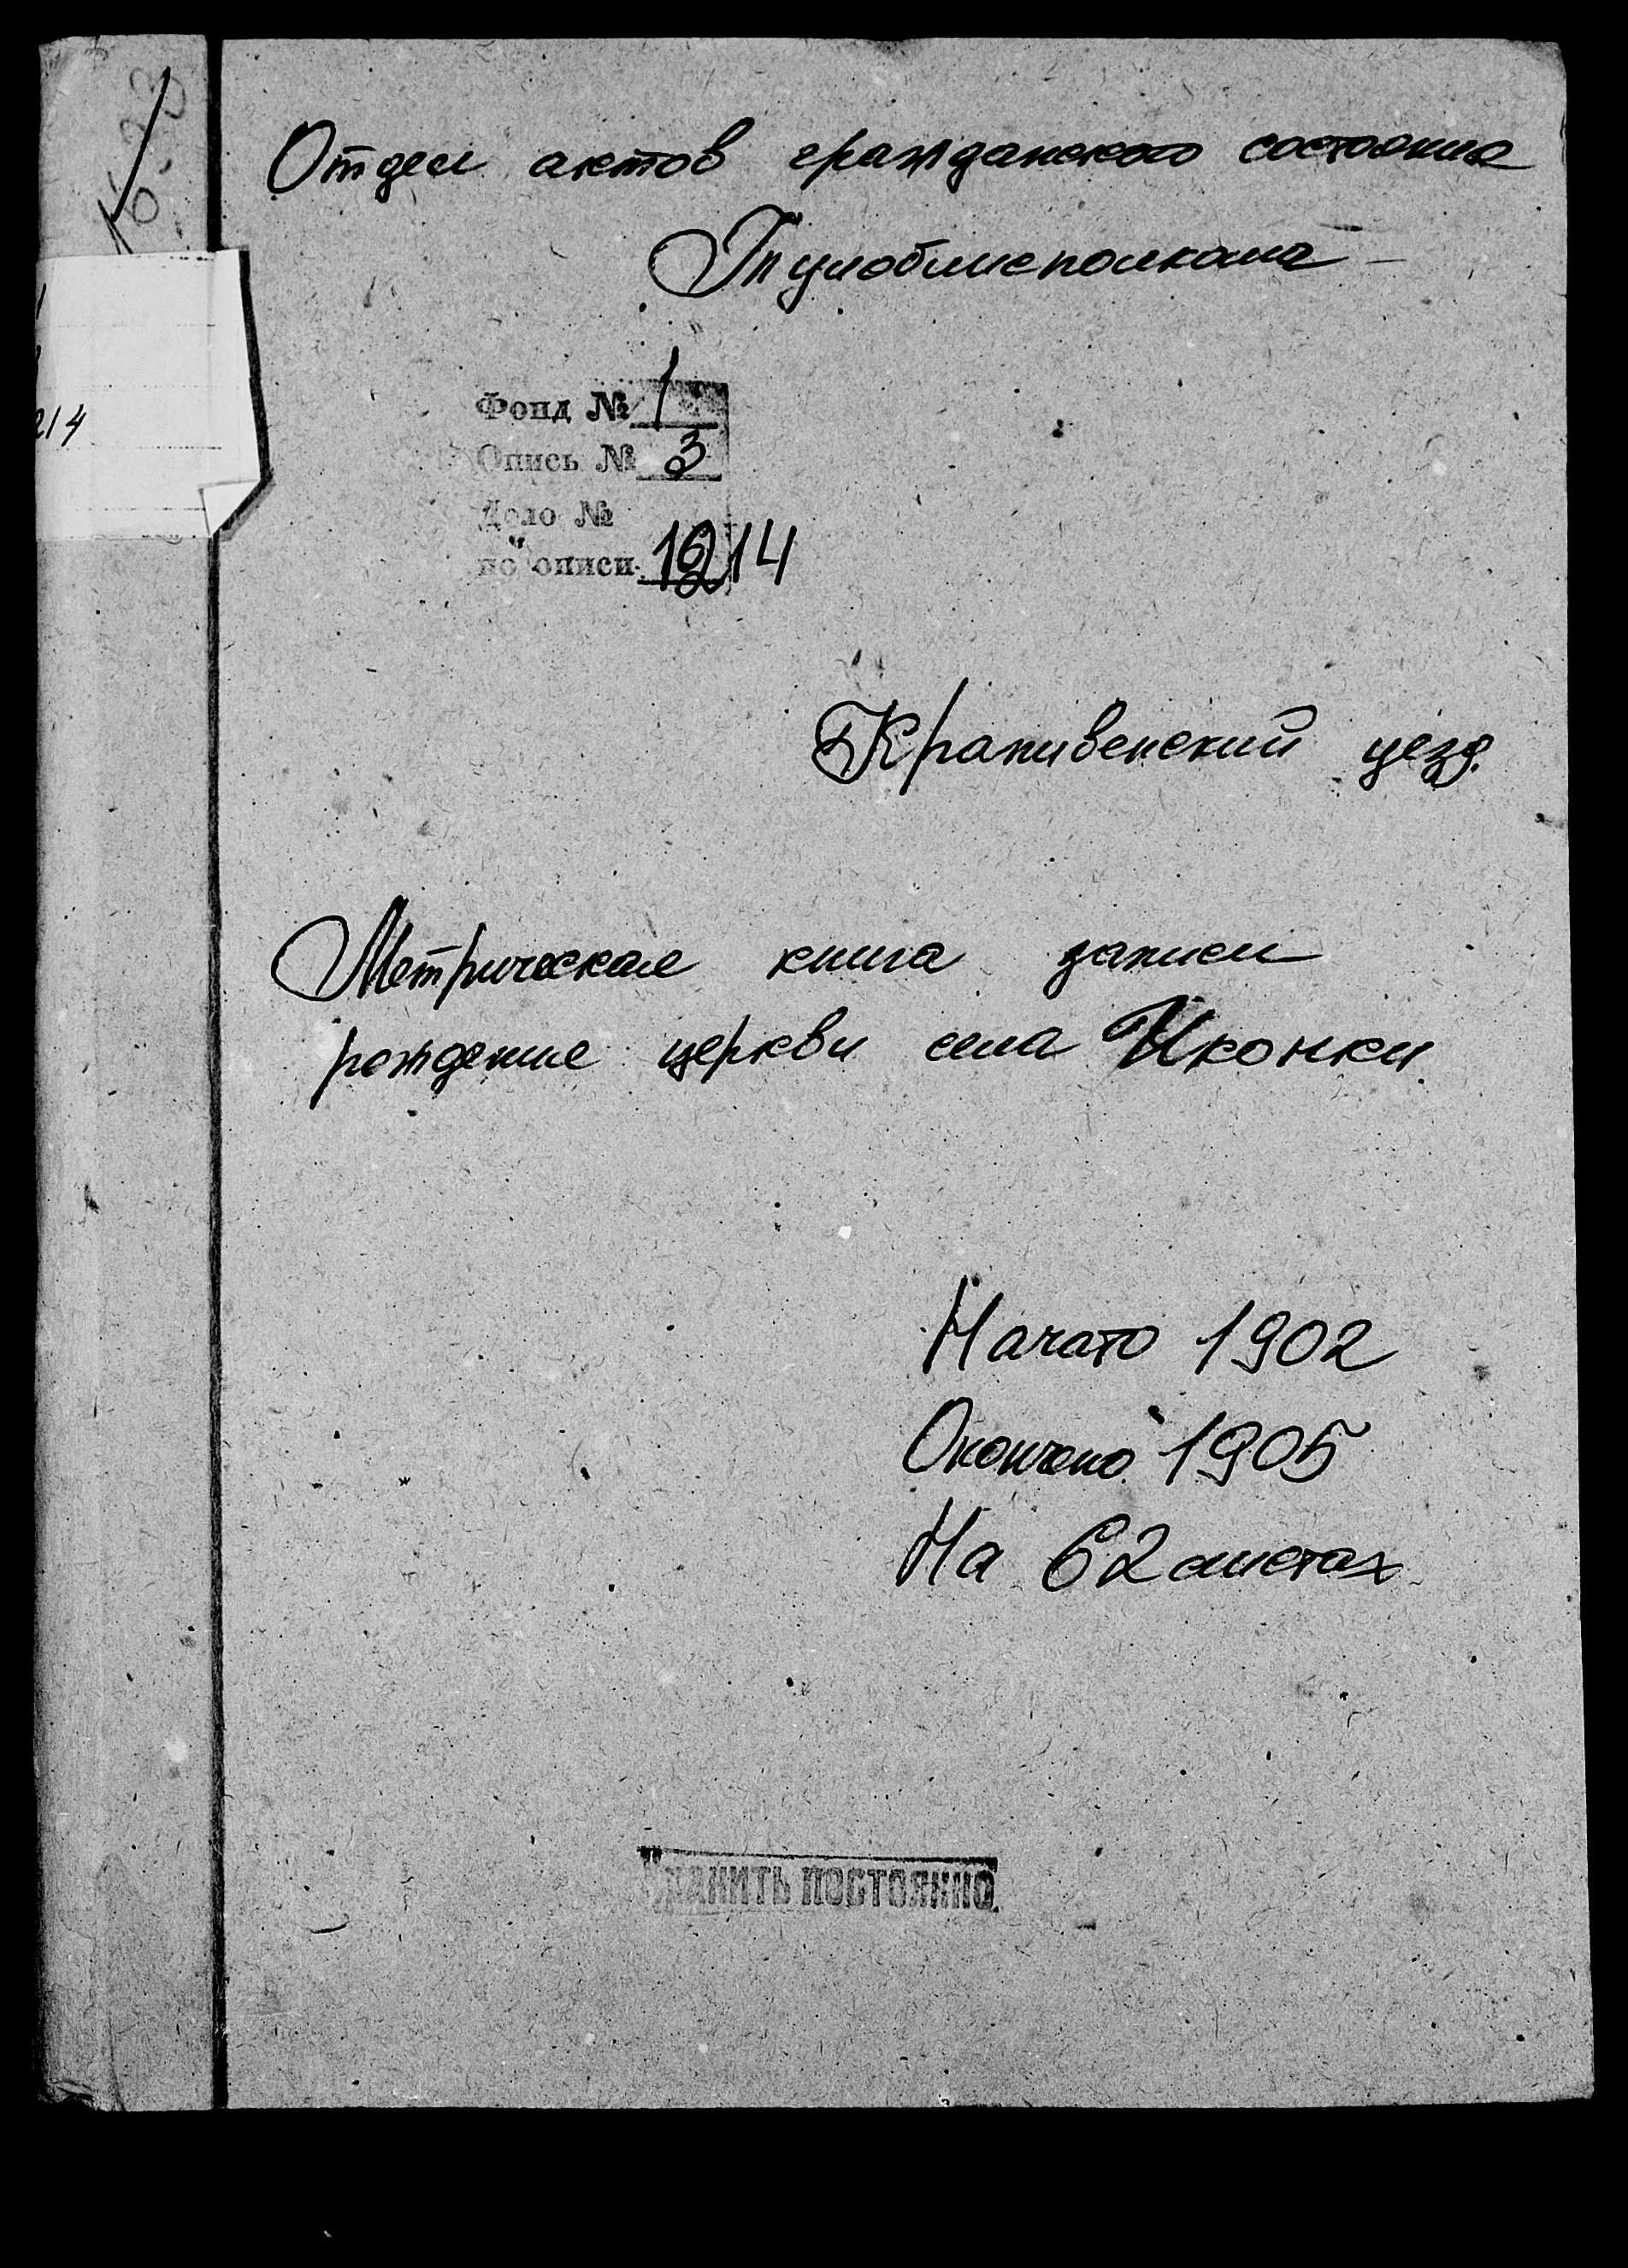 Отдел актов гражданского состояния
Тулоблисполкома
Фонд № 1
Опись № 3
Дело №
по описи 1214
214
Крапивенский уезд.
Метрическая книга записи
рождение церкви села Иконки.
Начато 1902
Окончено 1905
На 62 листах
ХРАНИТЬ ПОСТОЯННО